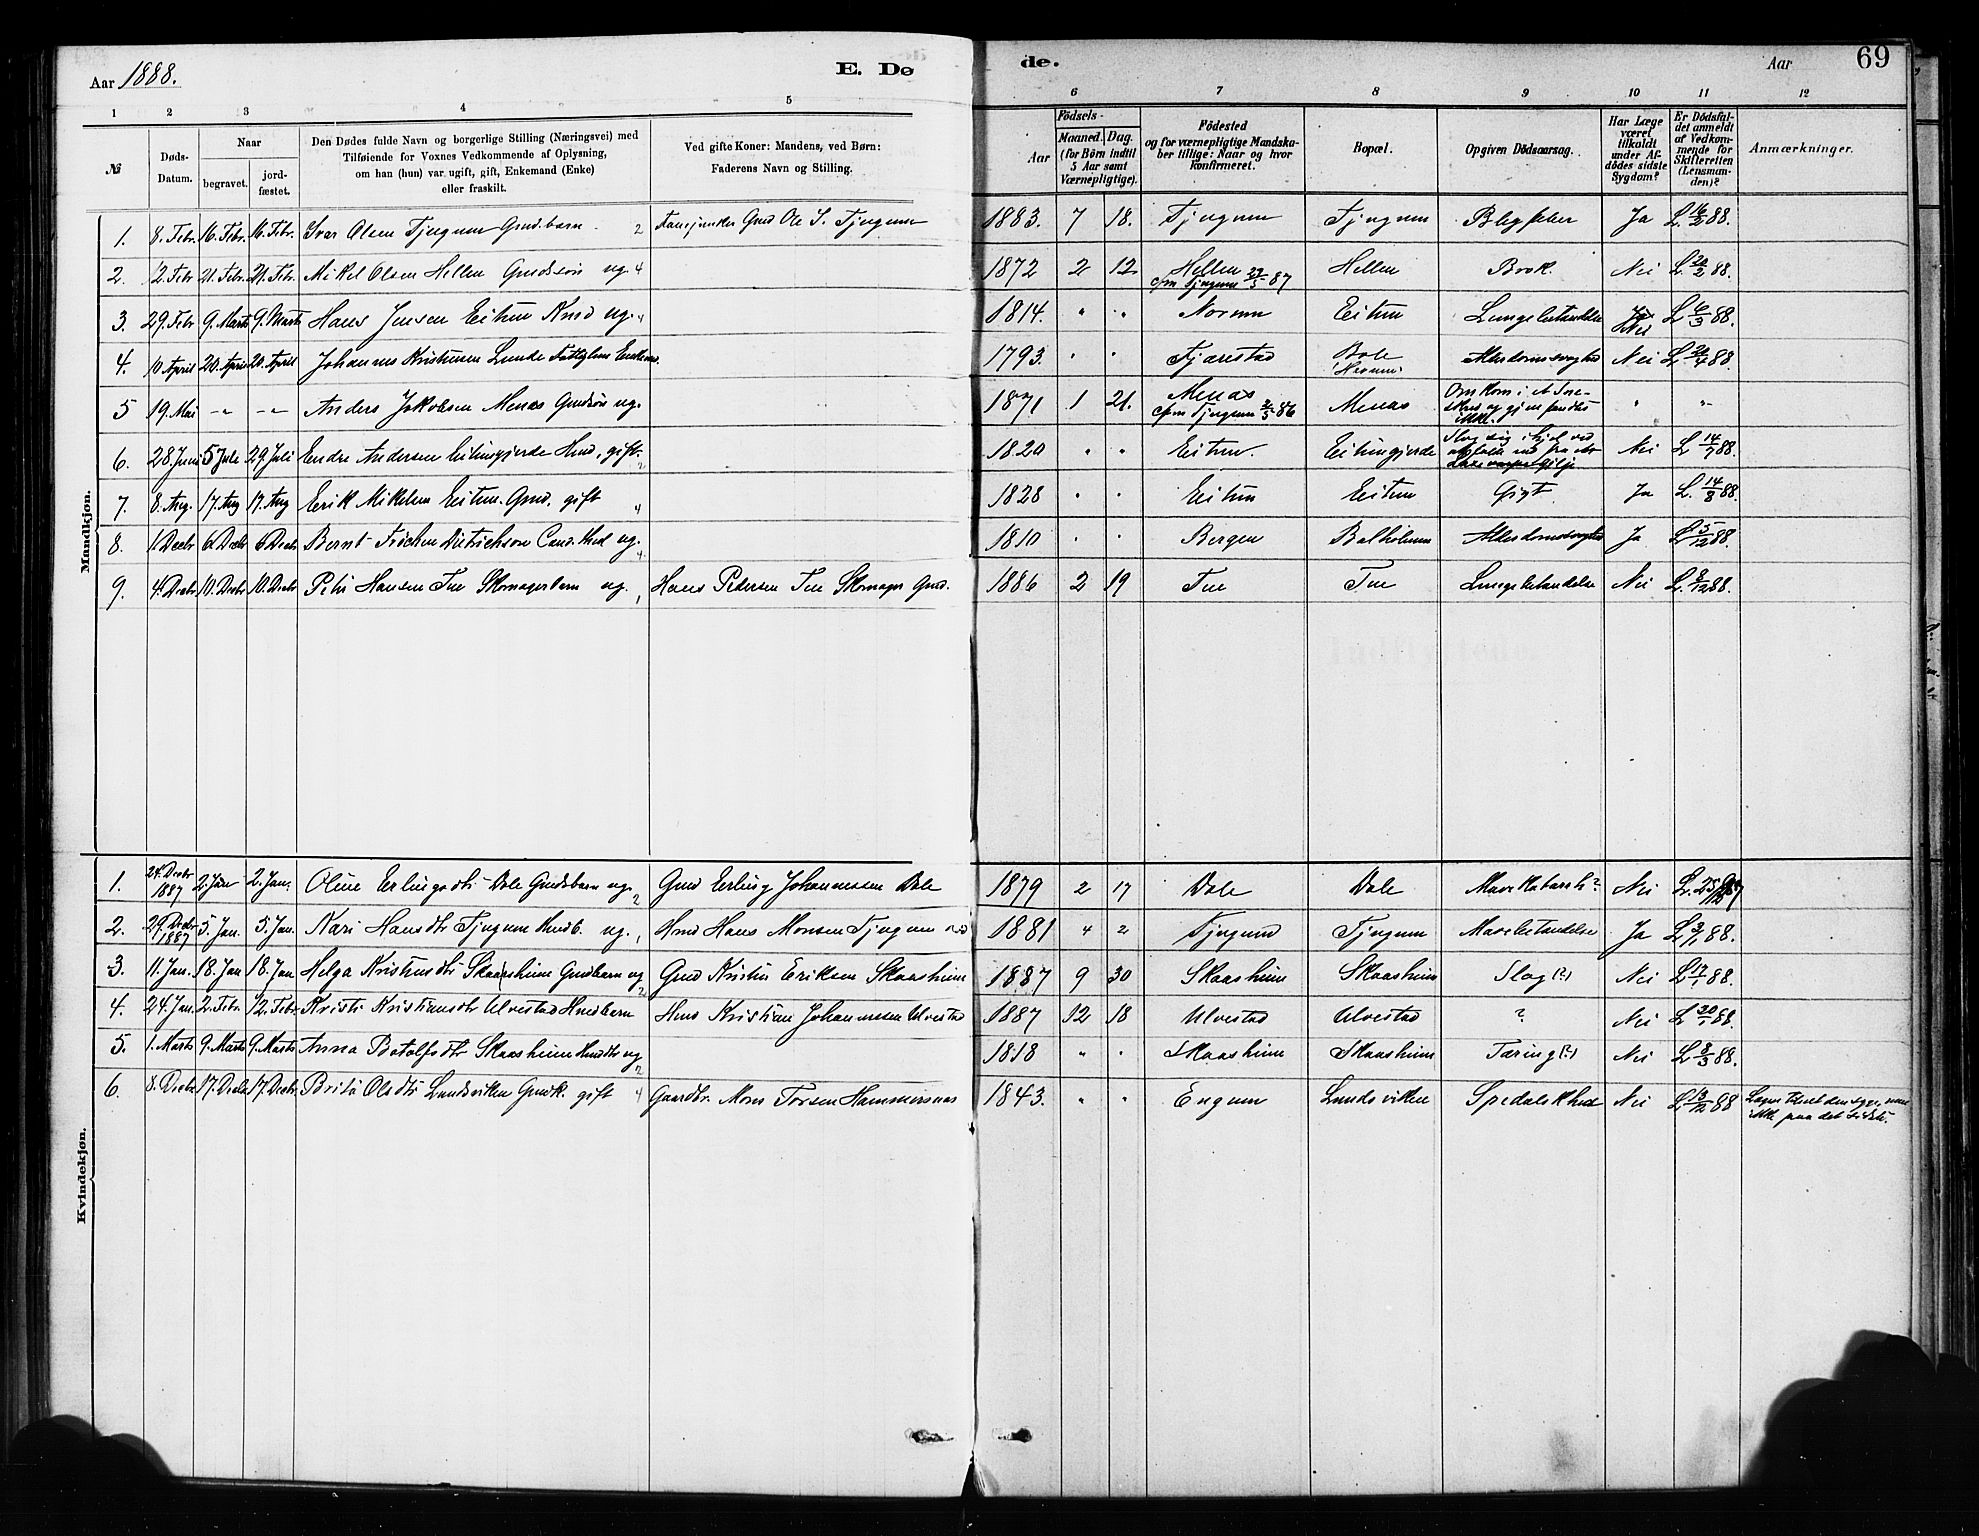 Aar 1888. E. Dø de. Aar 69
1 2 3 4 5 6 7 8 9 10 11 12
№ Døds-Datum. Naar begravet. jord-fæstet. Den Dødes fulde Navn og borgerlige Stilling (Næringsvei) med Tilføiende for Voxnes Vedkommende af Oplysning, om han (hun) var ugift, gift, Enkemand (Enke) eller fraskilt. Ved gifte Koner: Mandens, ved Børn: Faderens Navn og Stilling. Aar Fødsels- Maaned. Dag. (for Børn indtil 5 Aar samt Værnepligtige). Fødested og for værnepligtige Mandskaber tillige: Naar og hvor konfirmeret. Bopæl. Opgiven Dødsaarsag. Har Læge været tilkaldt under Afdødes sidste Sygdom? Er Dødsfaldet anmeldt af Vedkommende for Skifteretten (Lensmanden)? Anmærkninger.
Mandkjøn.
1. 8. Febr. 16. Febr. 16. Febr. Iver Olsen Tjugum Gmdsbarn 2 Gmd Ole I. Tjugum 1883. 7 18. Tjugum Tjugum Ja L. 16/2 88.
2. 12. Febr 21. Febr. 21. Febr. Mikel Olsen Hellen Gmdssøn ug. 4 1872 2 12 Hellen cfm Tjugum 87 Hellen Brok. Nei L. 20/2 88.
3. 29. Febr 9. Marts 9. Marts Hans Jensen Eitun Kmd ug. 4 1814. " " Norum Eitun Lungebetændelse Nei L 6/3 88.
4. 10 April 20. April 20. April Johannes Kristensen Lunde Fattiglem Enkemd. 1793. " " Fjærestad Bale Alderdomssvaghed Nei L 4 88.
5 19. Mai -"- -"- Anders Jakobsen Menæs Gmdssøn ug. 1871 1 21. Menæs cfm Tjugum 86 Menæs Omkom i et Sneskred og gjenfandtes ikke. " "
6. 28. Juni 5 Jule 29. Juli Endre Andersen Eitungjerde Hmd, gift. 2 1820 " " Eitun. Eitungjerde Slog sig ihjel ved at falde ned fra et Laxe Gilje Nei L 14/7 88.
7. 8. Aug. 17. Aug 17. Aug Erik Mikelsen Eitun. Gmd. gift 4 1828 " " Eitun Eitun Gigt Ja L. 14/8 88.
8. 1 Decbr 6. Decbr 6. Decbr Bernt Frichen Dietrichson Cand. Med ug. 4 1810 " " Bergen Balholmen Alderdomssvaghed Ja L 5/12 88.
9. 4. Decbr 10. Decbr 10. Decbr Peder Hansen Tue Skomagerbarn ug. 1 Hans Pedersen Tue Skomager Gmd. 1886 2 19 Tue Tue Lungebetændelse Nei L. 8/12 88.
Kvindekjøn.
1. 24. Decbr 1887 2. Jan 2. Jan. Oline Erlingsdtr Dale Gmdsbarn ug. 2 Gmd Erling Johannessen Dale 1879 2 17 Dale Dale Mavekatarrh? Nei L. 87
2. 29. Decbr 1887 5. Jan. 5. Jan. Kari Hansdtr Tjugum Hmdb. ug. 1 Hmd Hans Monsen Tjugum 1881 4 2 Tjugum Tjugum Mavebetændelse Ja L 3/1 88.
3 11. Jan. 18. Jan 18. Jan Helga Kristensdtr Skaasheim Gmdbarn ug. 2 Gmd Kristen Eriksen Skaasheim 1887 9 30 Skaasheim Skaasheim Slag (?) Nei L 17/1 88.
4. 24. Jan. 2. Febr. 12. Febr Kristi Kristiansdtr Ulvestad Hmdbarn Hmd Kristian Johannessen Ulvestad 1887 12 18 Ulvestad Ulvestad ? Nei L 30/1 88.
5. 1. Marts 9. Marts 9. Marts Anna Botolfsdtr Skaasheim Hmdtr ug 2 1818 " " Skaasheim Skaasheim Tæring (?) Nei L 8/3 88.
6 8. Decbr 17. Decbr 17. Decbr. Brita Olsdtr Lundsviken Gmdk. gift 4 Gaardbr. Mons Torsen Hammersnæs 1843. " " Engum Lundsviken Spedalskhed Nei L 13/12 88 ikke paa det sidste.